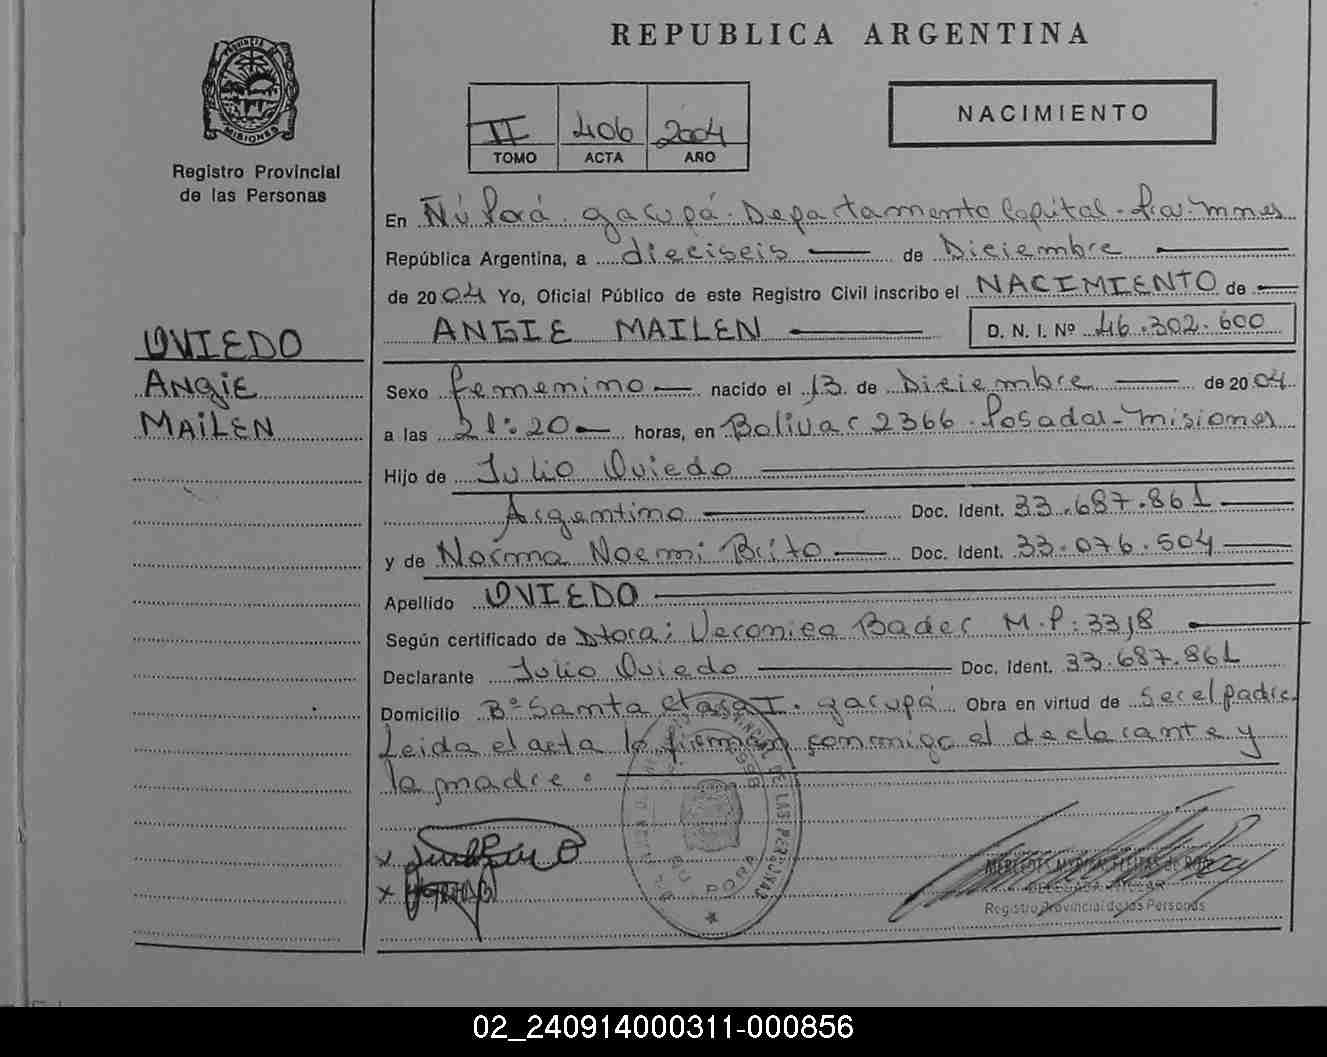 REPUBLICA ARGENTINA
PROVINCIA DE
MISIONES
Registro Provincial
de las Personas
II 406 2004
TOMO ACTA AÑO
NACIMIENTO
En Ñú Porá. garupá. Departamento Capital. Pcia. Mnes
República Argentina, a dieciseis de Diciembre
de 2004 Yo, Oficial Público de este Registro Civil inscribo el NACIMIENTO de
ANGIE MAILEN
D. N. I. Nº 46.302.600
OVIEDO
ANgiE
MAiLEN
Sexo femenino nacido el 13 de Diciembre de 2004
a las 21:20 horas, en Bolivar 2366. Posadas - Misiones
Hijo de Julio Oviedo
Argentino Doc. Ident. 33.687.861
y de Norma Noemi Brito Doc. Ident. 33.076.504
Apellido OVIEDO
Según certificado de Dtora: Veronica Bader M.P: 3318
Declarante Julio Oviedo Doc. Ident. 33.687.861
Domicilio Bº Santa Clara I. garupá Obra en virtud de Ser el padre
Leida el acta la firman conmigo el declarante y
la madre.
DE LAS PERSONAS
ÑU PORA
DELEGADA TITULAR
Registro Provincial de las Personas
02_240914000311-000856